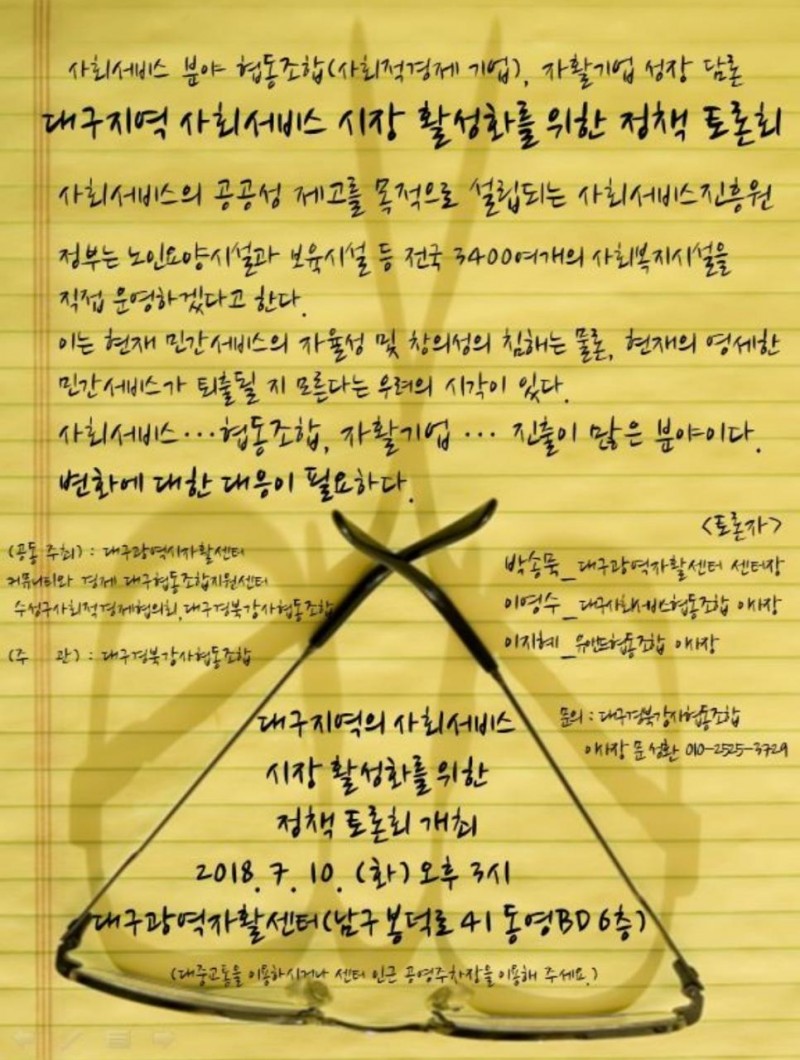 사회서비스 분야 협동조합(사회적경제 기업), 자활기업 성장 담론
대구지역 사회서비스 시장 활성화를 위한 정책 토론회
사회서비스의 공공성 제고를 목적으로 설립되는 사회서비스진흥원
정부는 노인요양시설과 보육시설 등 전국 3400여개의 사회복지시설을
직접 운영하겠다고 한다.
이는 현재 민간서비스의 자율성 및 창의성의 침해는 물론, 현재의 영세한
민간서비스가 퇴출될 지 모른다는 우려의 시각이 있다.
사회서비스···협동조합, 자활기업 ··· 진출이 많은 분야이다.
변화에 대한 대응이 필요하다.
<토론자>
(공동 주최) : 대구광역시자활센터
커뮤니티와 경제 대구협동조합지원센터
수성구사회적경제협의회, 대구경북강사협동조합
(주 관) : 대구경북강사협동조합
박송묵_대구광역자활센터 센터장
이영수_대구사회서비스협동조합 이사장
이지혜_유앤드협동조합 이사장
문의 : 대구경북강사협동조합
이사장 문성환 010-2525-3729
대구지역의 사회서비스
시장 활성화를 위한
정책 토론회 개최
2018. 7. 10. (화) 오후 3시
대구광역자활센터(남구 봉덕로 41 동영BD 6층)
(대중교통을 이용하시거나 센터 인근 공영주차장을 이용해 주세요.)